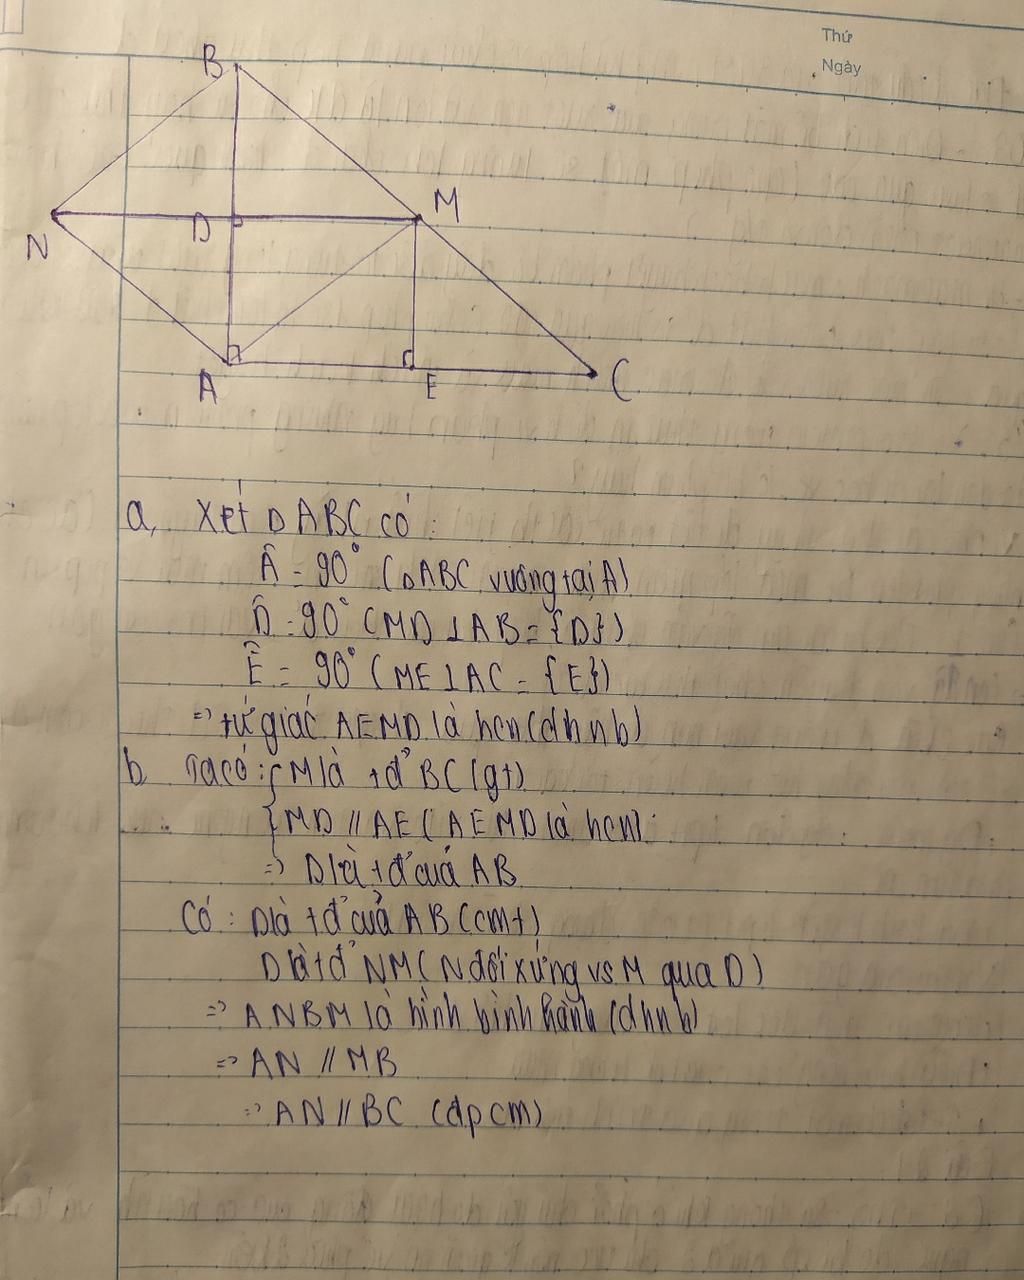 Thứ
Ngày
B
M
N
D
A
E
C
a, Xét ΔABC có:
Â = 90° (ΔABC vuông tại A)
D̂ = 90° (MD ⊥ AB = {D})
Ê = 90° (ME ⊥ AC = {E})
=> tứ giác AEMD là hcn (dhnb)
b, Ta có: { M là tđ BC (gt)
{ MD // AE (AEMD là hcn)
=> D là tđ của AB
Có: D là tđ của AB (cmt)
D là tđ NM (N đối xứng vs M qua D)
=> ANBM là hình bình hành (dhnb)
=> AN // MB
=> AN // BC (đpcm)